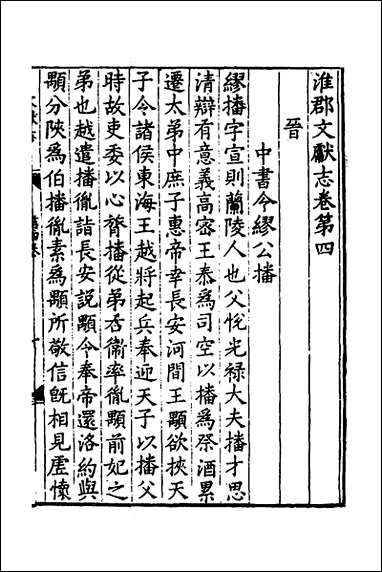 淮郡文獻志卷第四
晉
中書令繆公播
繆播字宣則蘭陵人也父悅光禄大夫播才思
清辯有意義高密王泰爲司空以播爲祭酒累
遷太弟中庶子惠帝幸長安河間王顒欲挾天
子令諸侯東海王越將起兵奉迎天子以播父
時故吏委以心膂播從弟右衞率胤顒前妃之
弟也越遣播胤詣長安説顒令奉帝還洛約與
顒分陜爲伯播胤素爲顒所敬信旣相見虛懷